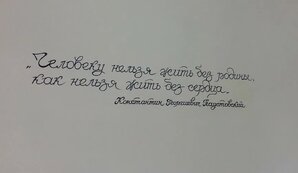 „Человеку нельзя жить без родины,
как нельзя жить без сердца.
Константин Георгиевич Паустовский